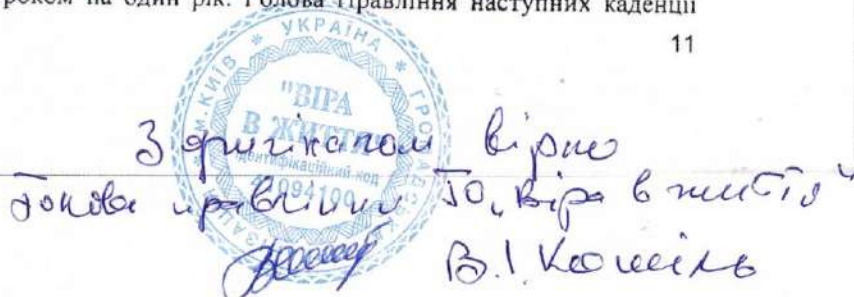 роком на один рік. Голова Правління наступних каденцій
11
* УКРАЇНА *
м.КИЇВ
"ВІРА
В ЖИТТЯ"
ідентифікаційний код
З оригіналом вірно
Голова правління ГО „Віра в життя"
В.І.